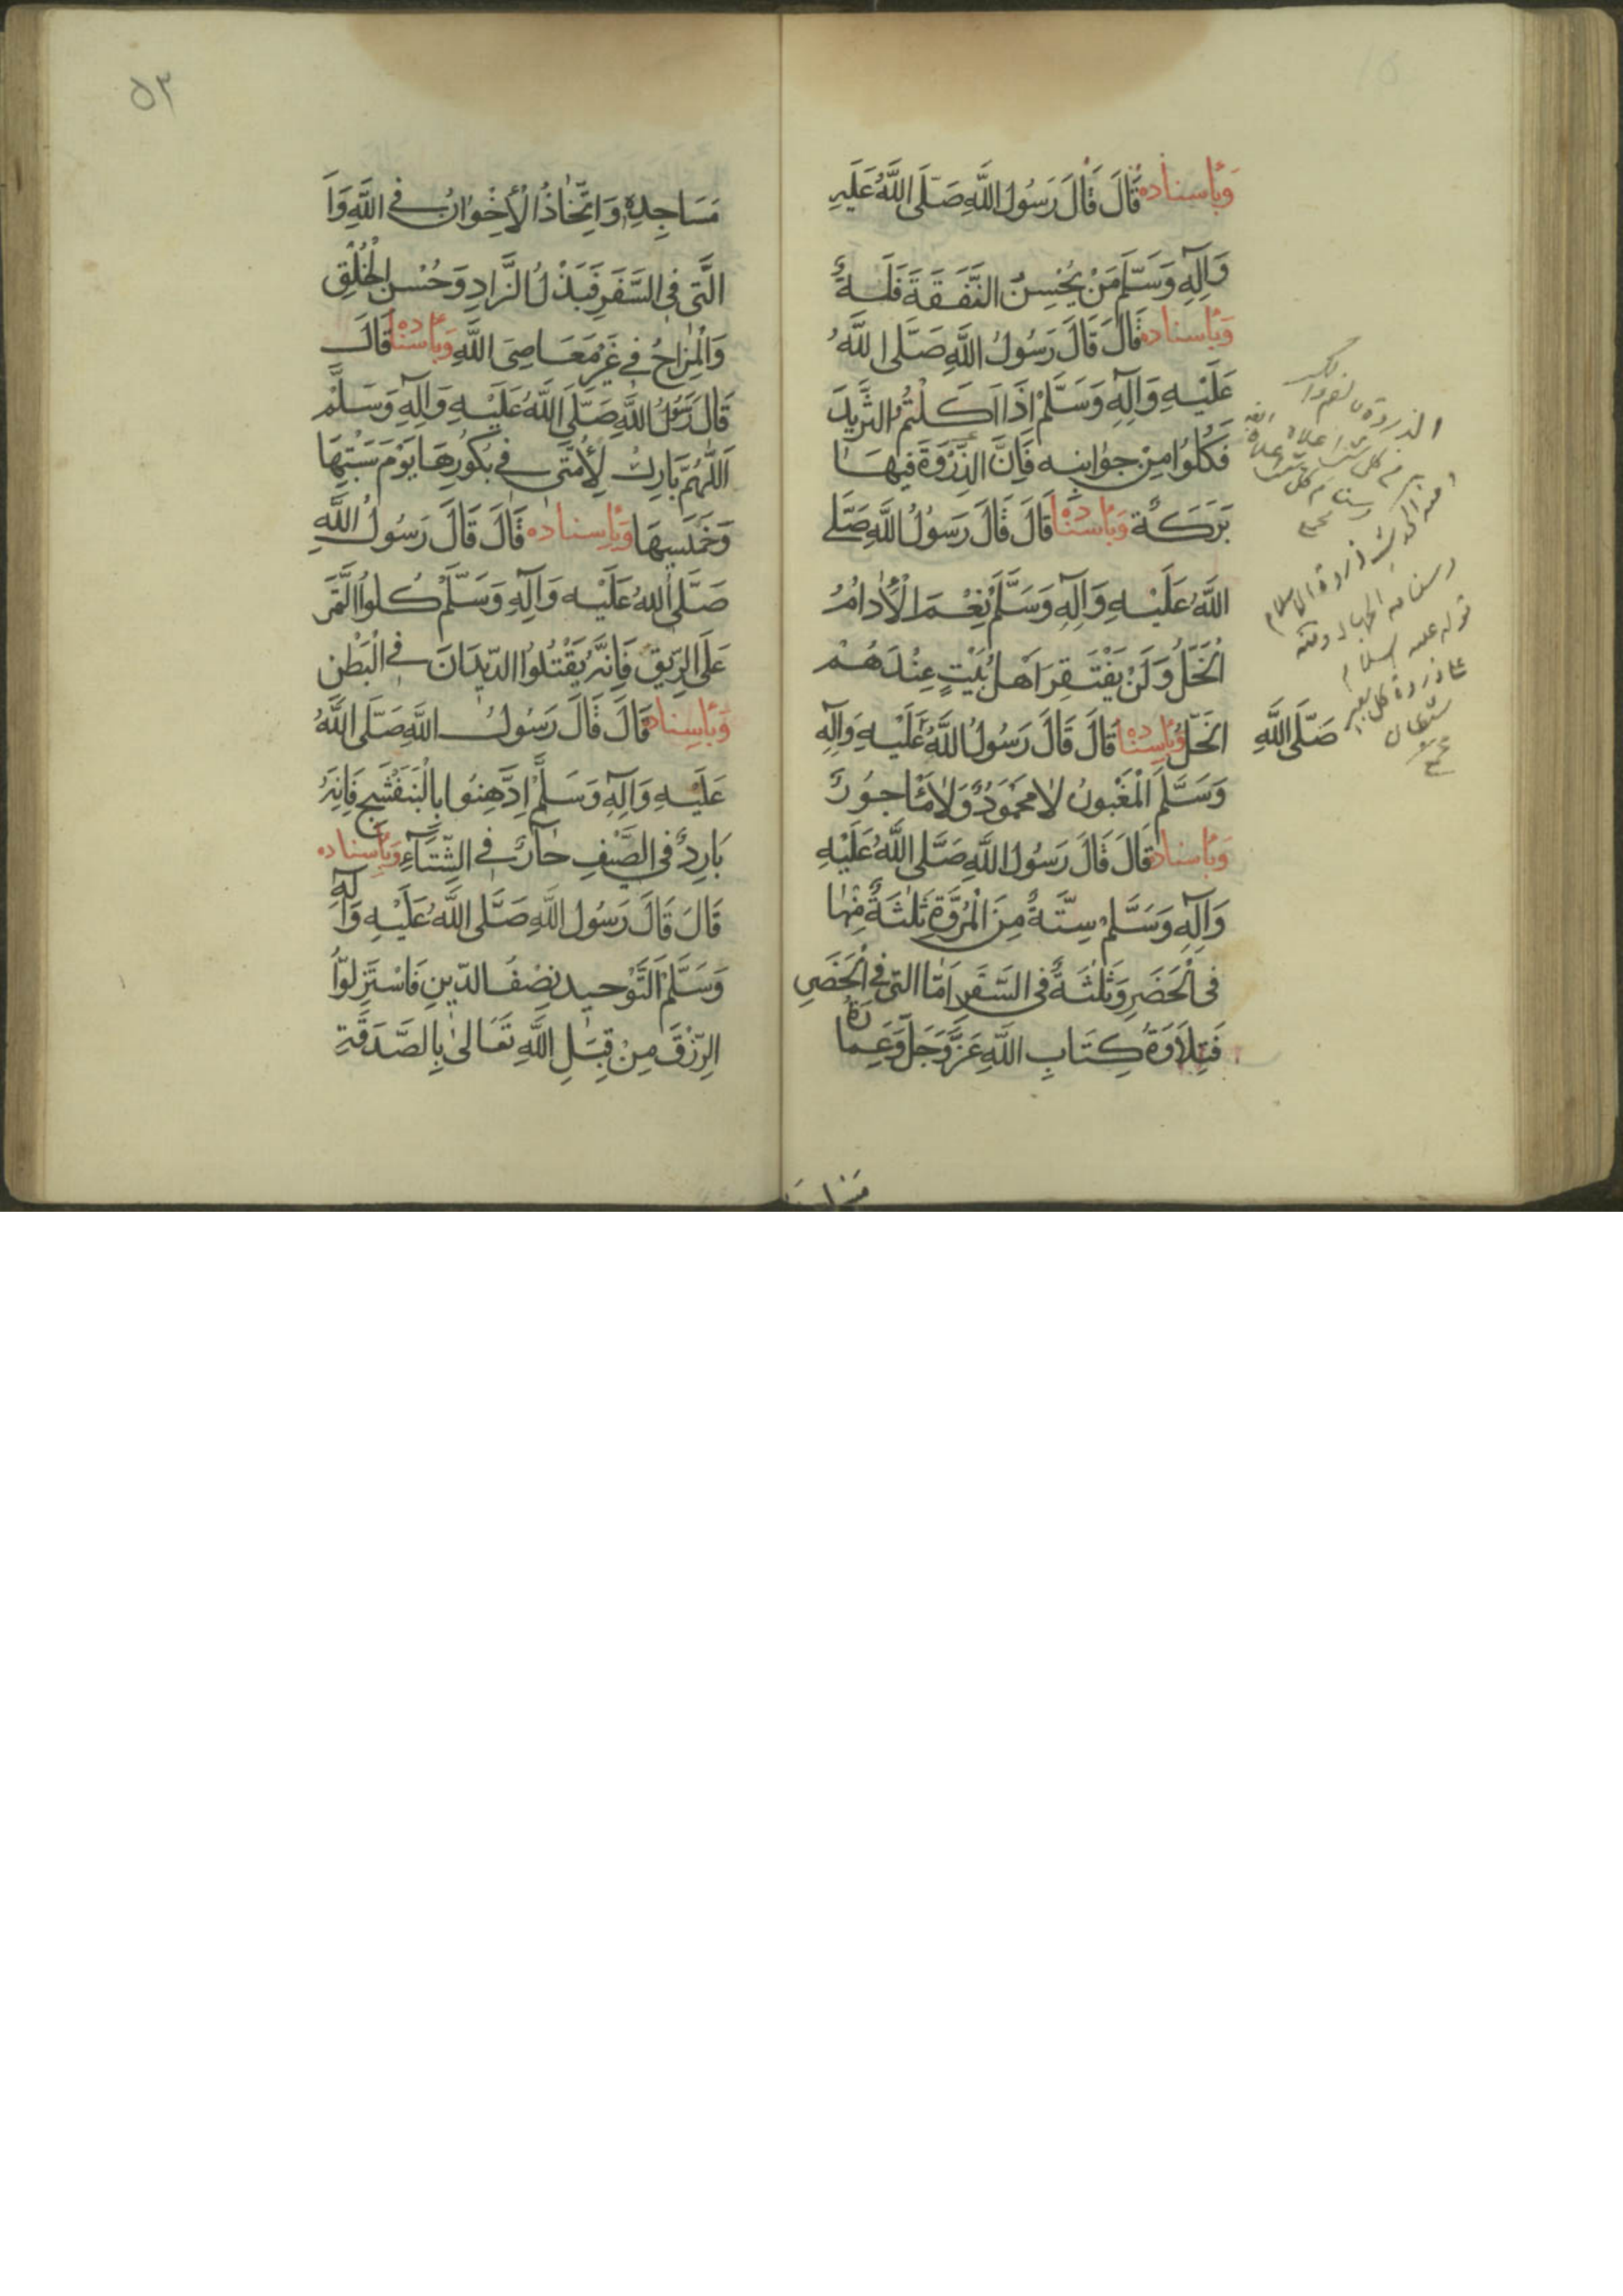 وَبِأسناده قَالَ قَالَ رَسُولُ اللَّهِ صَلَّى اللَّهُ عَلَيهِ
وَآلِهِ وَسَلَّمَ مَنْ يُحْسِنُ النَّفَقَةَ فَلَهُ
وَبِأسناده قَالَ قَالَ رَسُولُ اللَّهِ صَلَّى اللَّهُ
عَلَيْهِ وَآلِهِ وَسَلَّمْ اِذَا اَكَلْتُمُ الثَّرِيدَ
فَكُلُوا مِنْ جَوٰانِبِه فَاِنَّ الذِّرْوَةَ فيهَا
بَرَكَة وَبِأسْنٰاده قَالَ قَالَ رَسُولُ اللَّهِ صَلَّى
اللَّهُ عَلَيْهِ وَآلِهِ وَسَلَّمَ نِعْمَ الْأدٰامُ
الْخَلُّ وَلَنْ يَفْتَقِرَ اَهْلُ بَيْتٍ عِنْدَهُمْ
الخَلُّ وَبِأسنٰاده قَالَ قَالَ رَسُولُ اللَّهُ عَلَيْهِ وَآلِهِ
صَلَّى اللَّهِ
وَسَلَّمَ الْمَغْبونُ لاٰ محَمَوُدٌ وَلاٰ مَأجوُرٌ
وَبِأسناده قَالَ قَالَ رَسُولُ اللَّهِ صَلَّى اللَّهُ عَلَيْهِ
وَآلِهِ وَسَلَّمْ سِتَّةٌ مِنَ الْمُرُوَّةِ ثَلٰثَةٌ مِنْهٰا
فى الْحَضَرِ وَثَلٰثَةٌ فى السَّفَرِ اَمَّا التى فى الْحَضَرِ
فَتِلاَوَةُ كِتَابِ اللَّهِ عَزَّ وَجَلَّ وَعِمارَةُ
مَسٰا
۵۳
مَسَاجِدِهِ وَاتِّخٰاذُ الْأخْوٰانُ فى اللَّهِ وَاَ
الَّتى فى السَّفَرِ فَبَذْلُ الزَّادِ وَحُسْنِ الْخُلْقِ
وَالْمِزاحُ فى غَيْرِ مَعَاصِىَ اللَّهِ وَبِأسْنٰاده قَالَ
قَالَ رَسُولُ اللَّهِ صَلَّى اللَّهُ عَلَيْهِ وَآلِهِ وَسَلَّمْ
اَللّٰهُمَّ بَارِكْ لِأُمَّتى فى بُكُورِهَا يَوْمَ سَبْتِهَا
وَخَمَيسِهَا وَبِأسناده قَالَ قَالَ رَسُولُ اللَّهِ
صَلَّى اللهُ عَلَيْه وَآلِهِ وَسَلَّمْ كُلوُا التَّمَرَ
عَلَى الرِّيقِ فَاِنَّهُ يَقْتُلُوا الدّيدَانَ فى الْبَطْنِ
وَبِأسِناده قَالَ قَالَ رَسُولُ اللَّهِ صَلَّى اللَّهُ
عَلَيْهِ وَآلِهِ وَسَلَّمْ اِدَّهِنُوا بِالْبَنَفْشَجِ فَاِنَّهُ
بَارِدٌ فى الصَّيْفِ حٰآرٌ فى الشِّتَآءِ وَبِأسناده
قَالَ قَالَ رَسُولُ اللَّهِ صَلَّى اللَّهُ عَلَيْهِ وَآلِهِ
وَسَلَّمْ اَلتَّوْحيد نِصْفُ الدّينِ فَاسْتَنْزِلوُا
الرِّزْقَ مِنْ قِبَلِ اللَّهِ تَعَالىٰ بِالصَّدَقَةِ